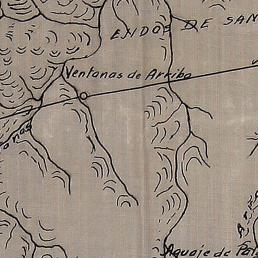 ENDOS DE SAN
Ventanas de Arriba
Aguaje de